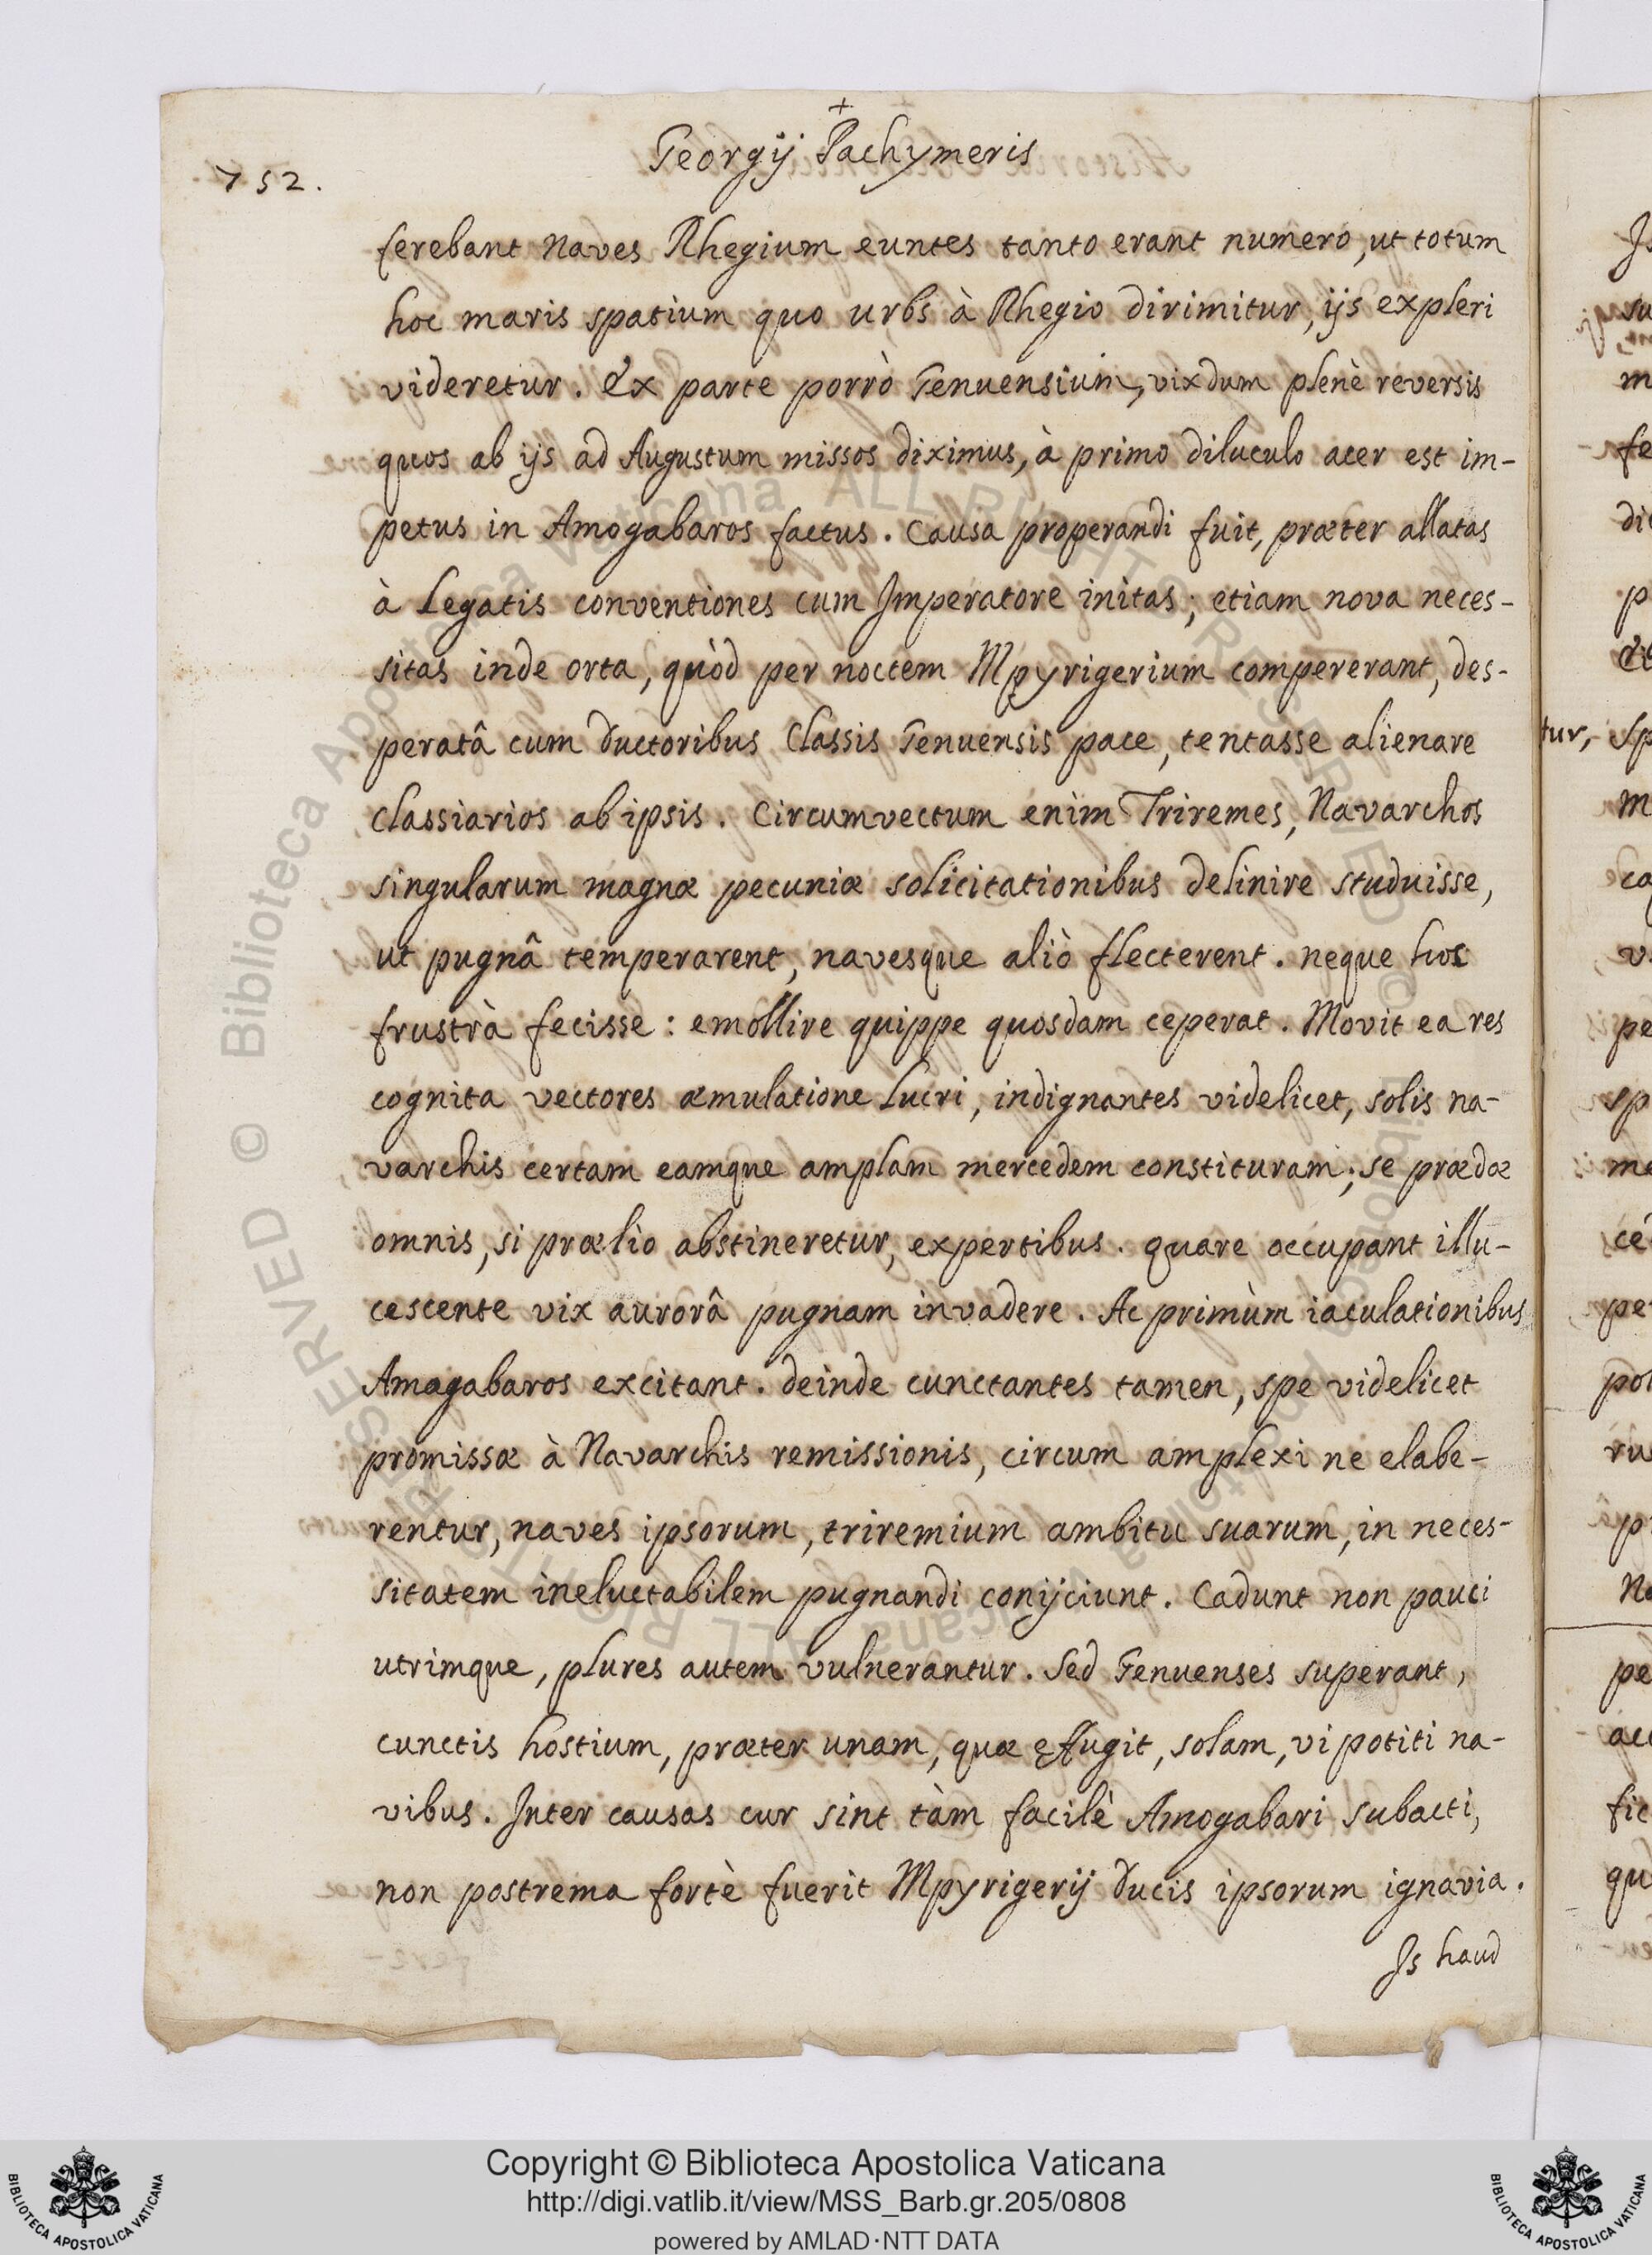 +
Georgij Pachymeris
752.
ferebant naves Rhegium euntes tanto erant numero, ut totum
hoc maris spatium quo urbs à Rhegio dirimitur, ijs expleri
videretur. Ex parte porrò Genuensium, vixdum plenè reversis
quos ab ijs ad Augustum missos diximus, à primo diluculo acer est im-
petus in Amogabaros factus. Causa properandi fuit, præter allatas
à Legatis conventiones cum Imperatore initas; etiam nova neces-
sitas inde orta, quòd per noctem Mpyrigerium compererant, des-
peratâ cum ductoribus Classis Genuensis pace, tentasse alienare
classiarios ab ipsis. Circumvectum enim Triremes, Navarchos
singularum magnæ pecuniæ solicitationibus delinire studuisse,
ut pugnâ temperarent, navesque aliò flecterent. neque hoc
frustrà fecisse: emollire quippe quosdam ceperat. Movit ea res
cognita vectores æmulatione lucri, indignantes videlicet, solis na-
varchis certam eamque amplam mercedem constitutam; se prædæ
omnis, si prælio abstineretur, expertibus. quare occupant illu-
cescente vix aurorâ pugnam invadere. Ac primùm iaculationibus
Amagabaros excitant. deinde cunctantes tamen, spe videlicet
promissæ à Navarchis remissionis, circum amplexi ne elabe-
rentur, naves ipsorum, triremium ambitu suarum, in neces-
sitatem ineluctabilem pugnandi conijciunt. Cadunt non pauci
utrimque, plures autem vulnerantur. Sed Genuenses superant,
cunctis hostium, præter unam, quæ effugit, solam, vi potiti na-
vibus. Inter causas cur sint tàm facilè Amogabari subacti,
non postrema fortè fuerit Mpyrigerij ducis ipsorum ignavia.
Is haud
tur,
© Biblioteca Apostolica Vaticana ALL RIGHTS RESERVED
Copyright © Biblioteca Apostolica Vaticana
http://digi.vatlib.it/view/MSS_Barb.gr.205/0808
powered by AMLAD·NTT DATA
BIBLIOTECA APOSTOLICA VATICANA
BIBLIOTECA APOSTOLICA VATICANA